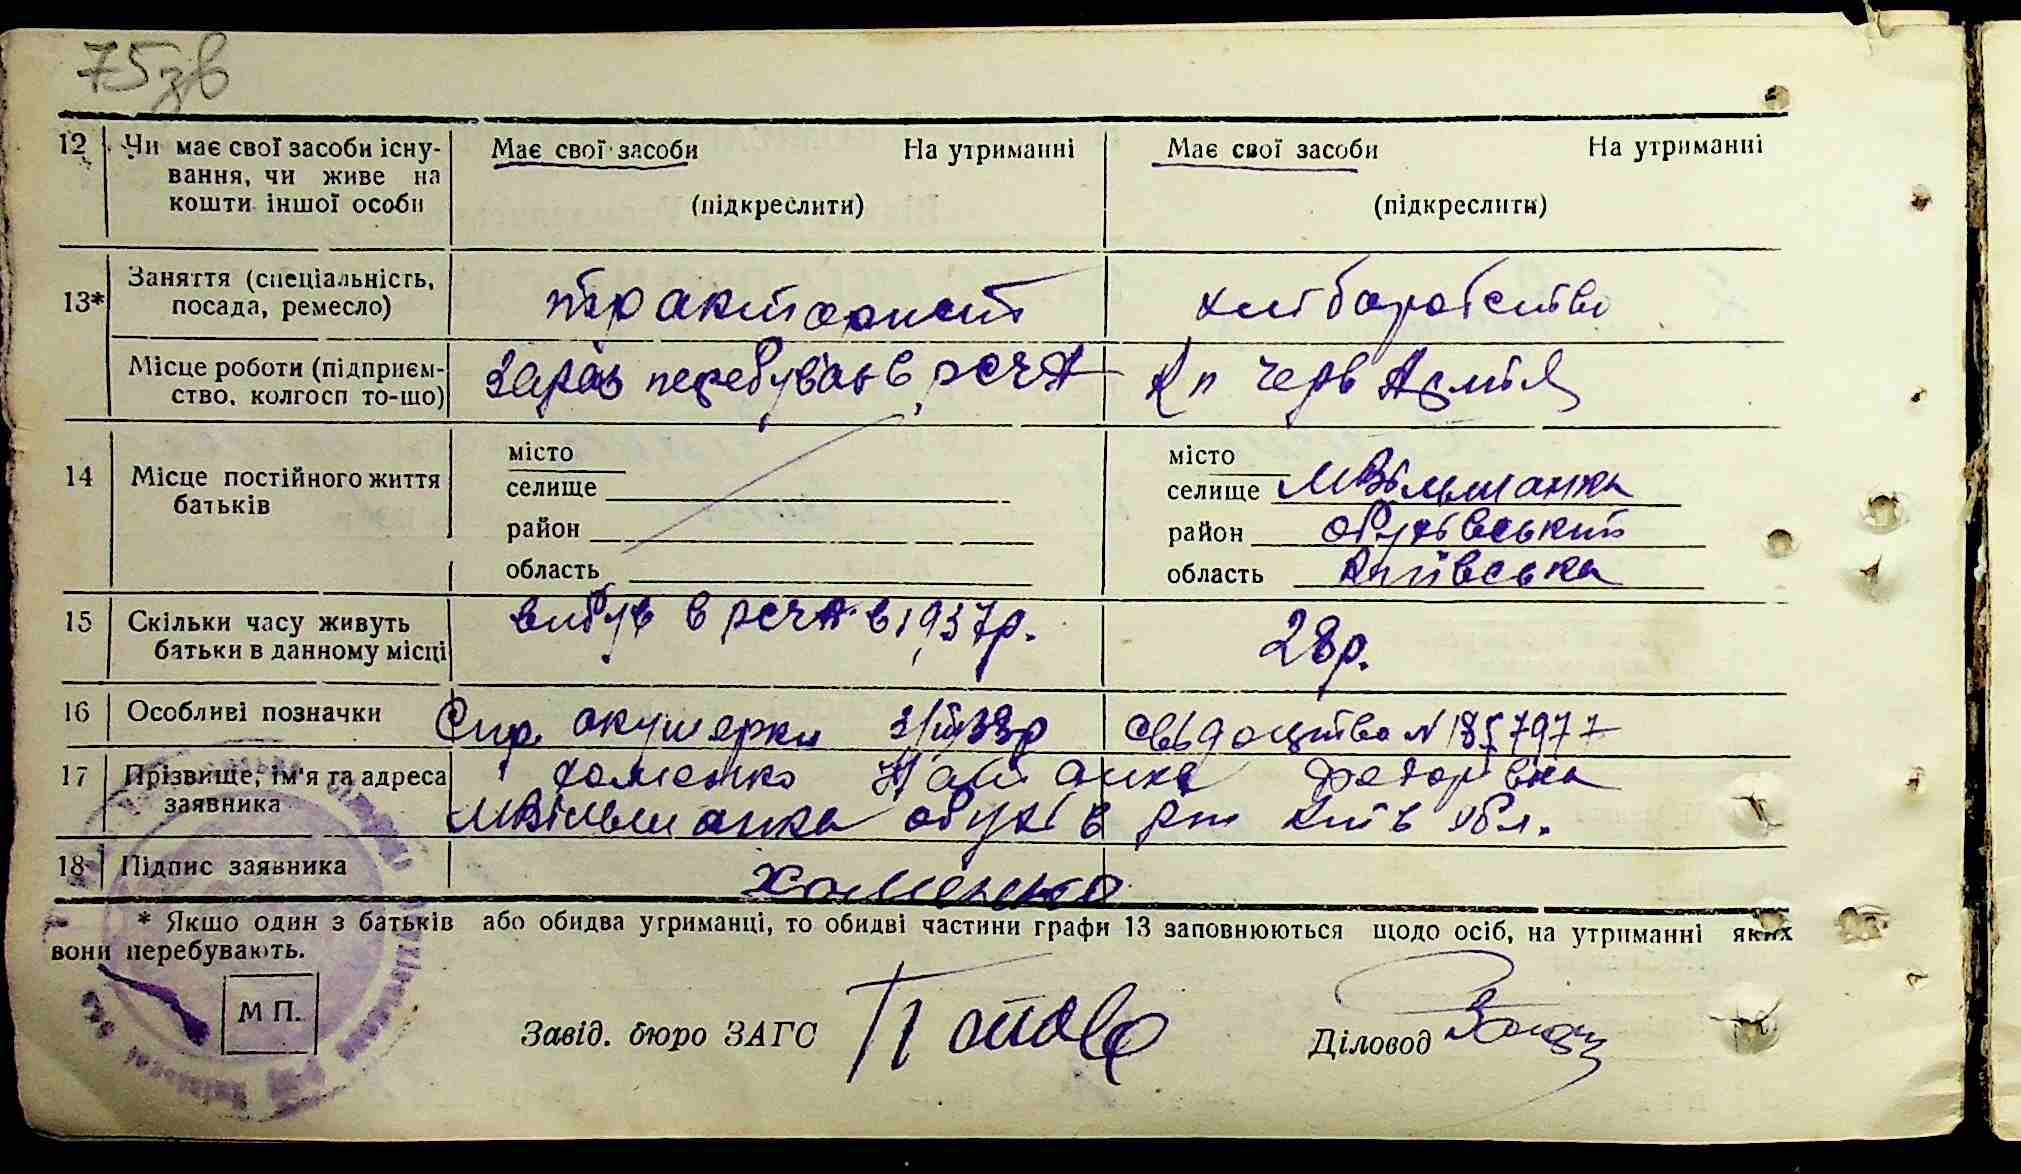 75зв
12 Чи має свої засоби існу- Має свої засоби На утриманні Має свої засоби На утриманні
вання, чи живе на
кошти іншої особи (підкреслити) (підкреслити)
13* Заняття (спеціальність, посада, ремесло) тракторист хліборобство
Місце роботи (підприєм- зараз перебуває в РСЧА Кп Черв Армія
ство, колгосп то-що)
14 Місце постійного життя батьків
місто місто
селище селище МВільшанка
район район обухівський
область область Київська
15 Скільки часу живуть вибув в РСЧА в 1937р. 28р.
батьки в данному місці
16 Особливі позначки Спр. акушерки 38р свідоцтво N
17 Прізвище, ім'я та адреса Хоменко Федорівна
заявника МВільшанка обухів р Київ обл.
18 Підпис заявника Хоменко
* Якщо один з батьків або обидва утриманці, то обидві частини графи 13 заповнюються щодо осіб, на утриманні яких
вони перебувають.
М П.
Завід. бюро ЗАГС Діловод